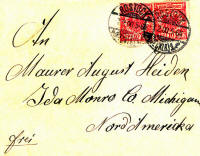 An
Maurer August Heiden
Ida Monro Co. Michigan
Nord Amerika
frei